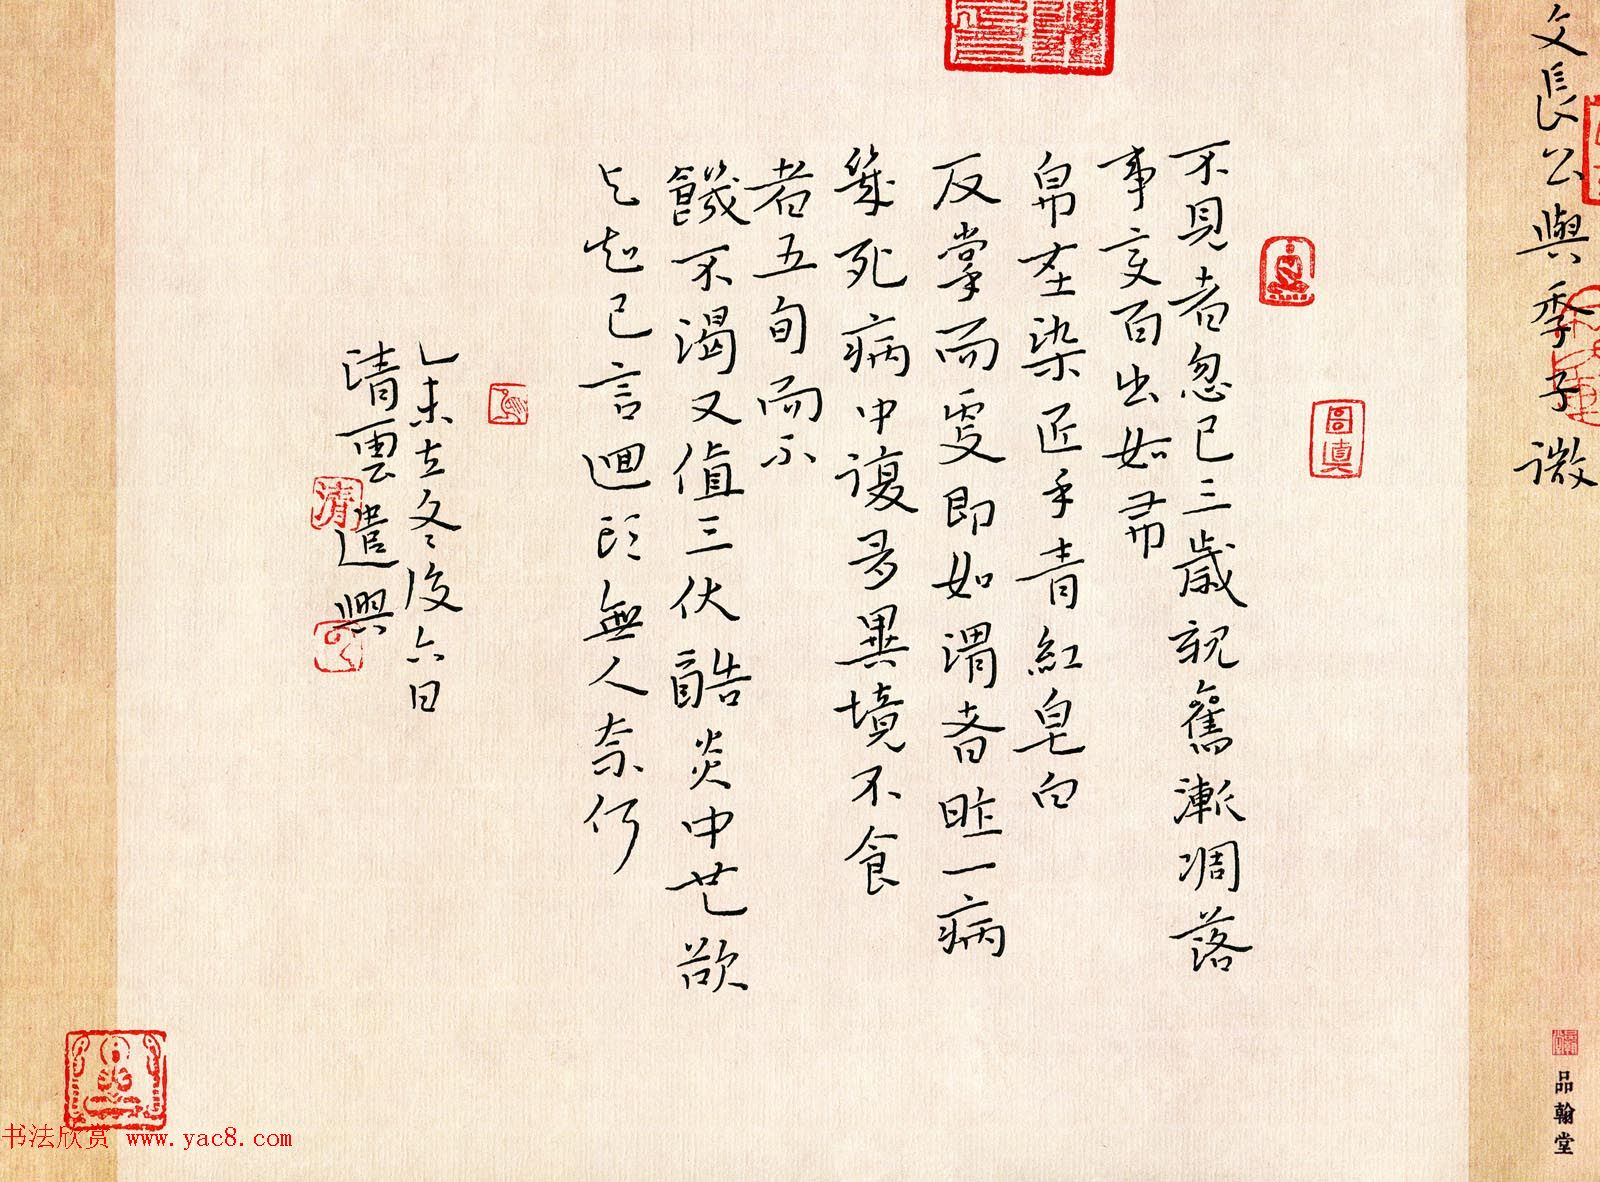 文長公與季子微
不見者忽已三歲親舊漸凋落
事変百出如帚
帛在染匠手青紅皂白
反掌而变即如渭者昨一病
幾死病中複多異境不食
者五旬而不
饑不渴又值三伏酷炎中世欲
起已言迴頭無人奈何
乙未立冬後六日
清雲遣興
圖真
清
品翰堂
书法欣赏 www.yac8.com